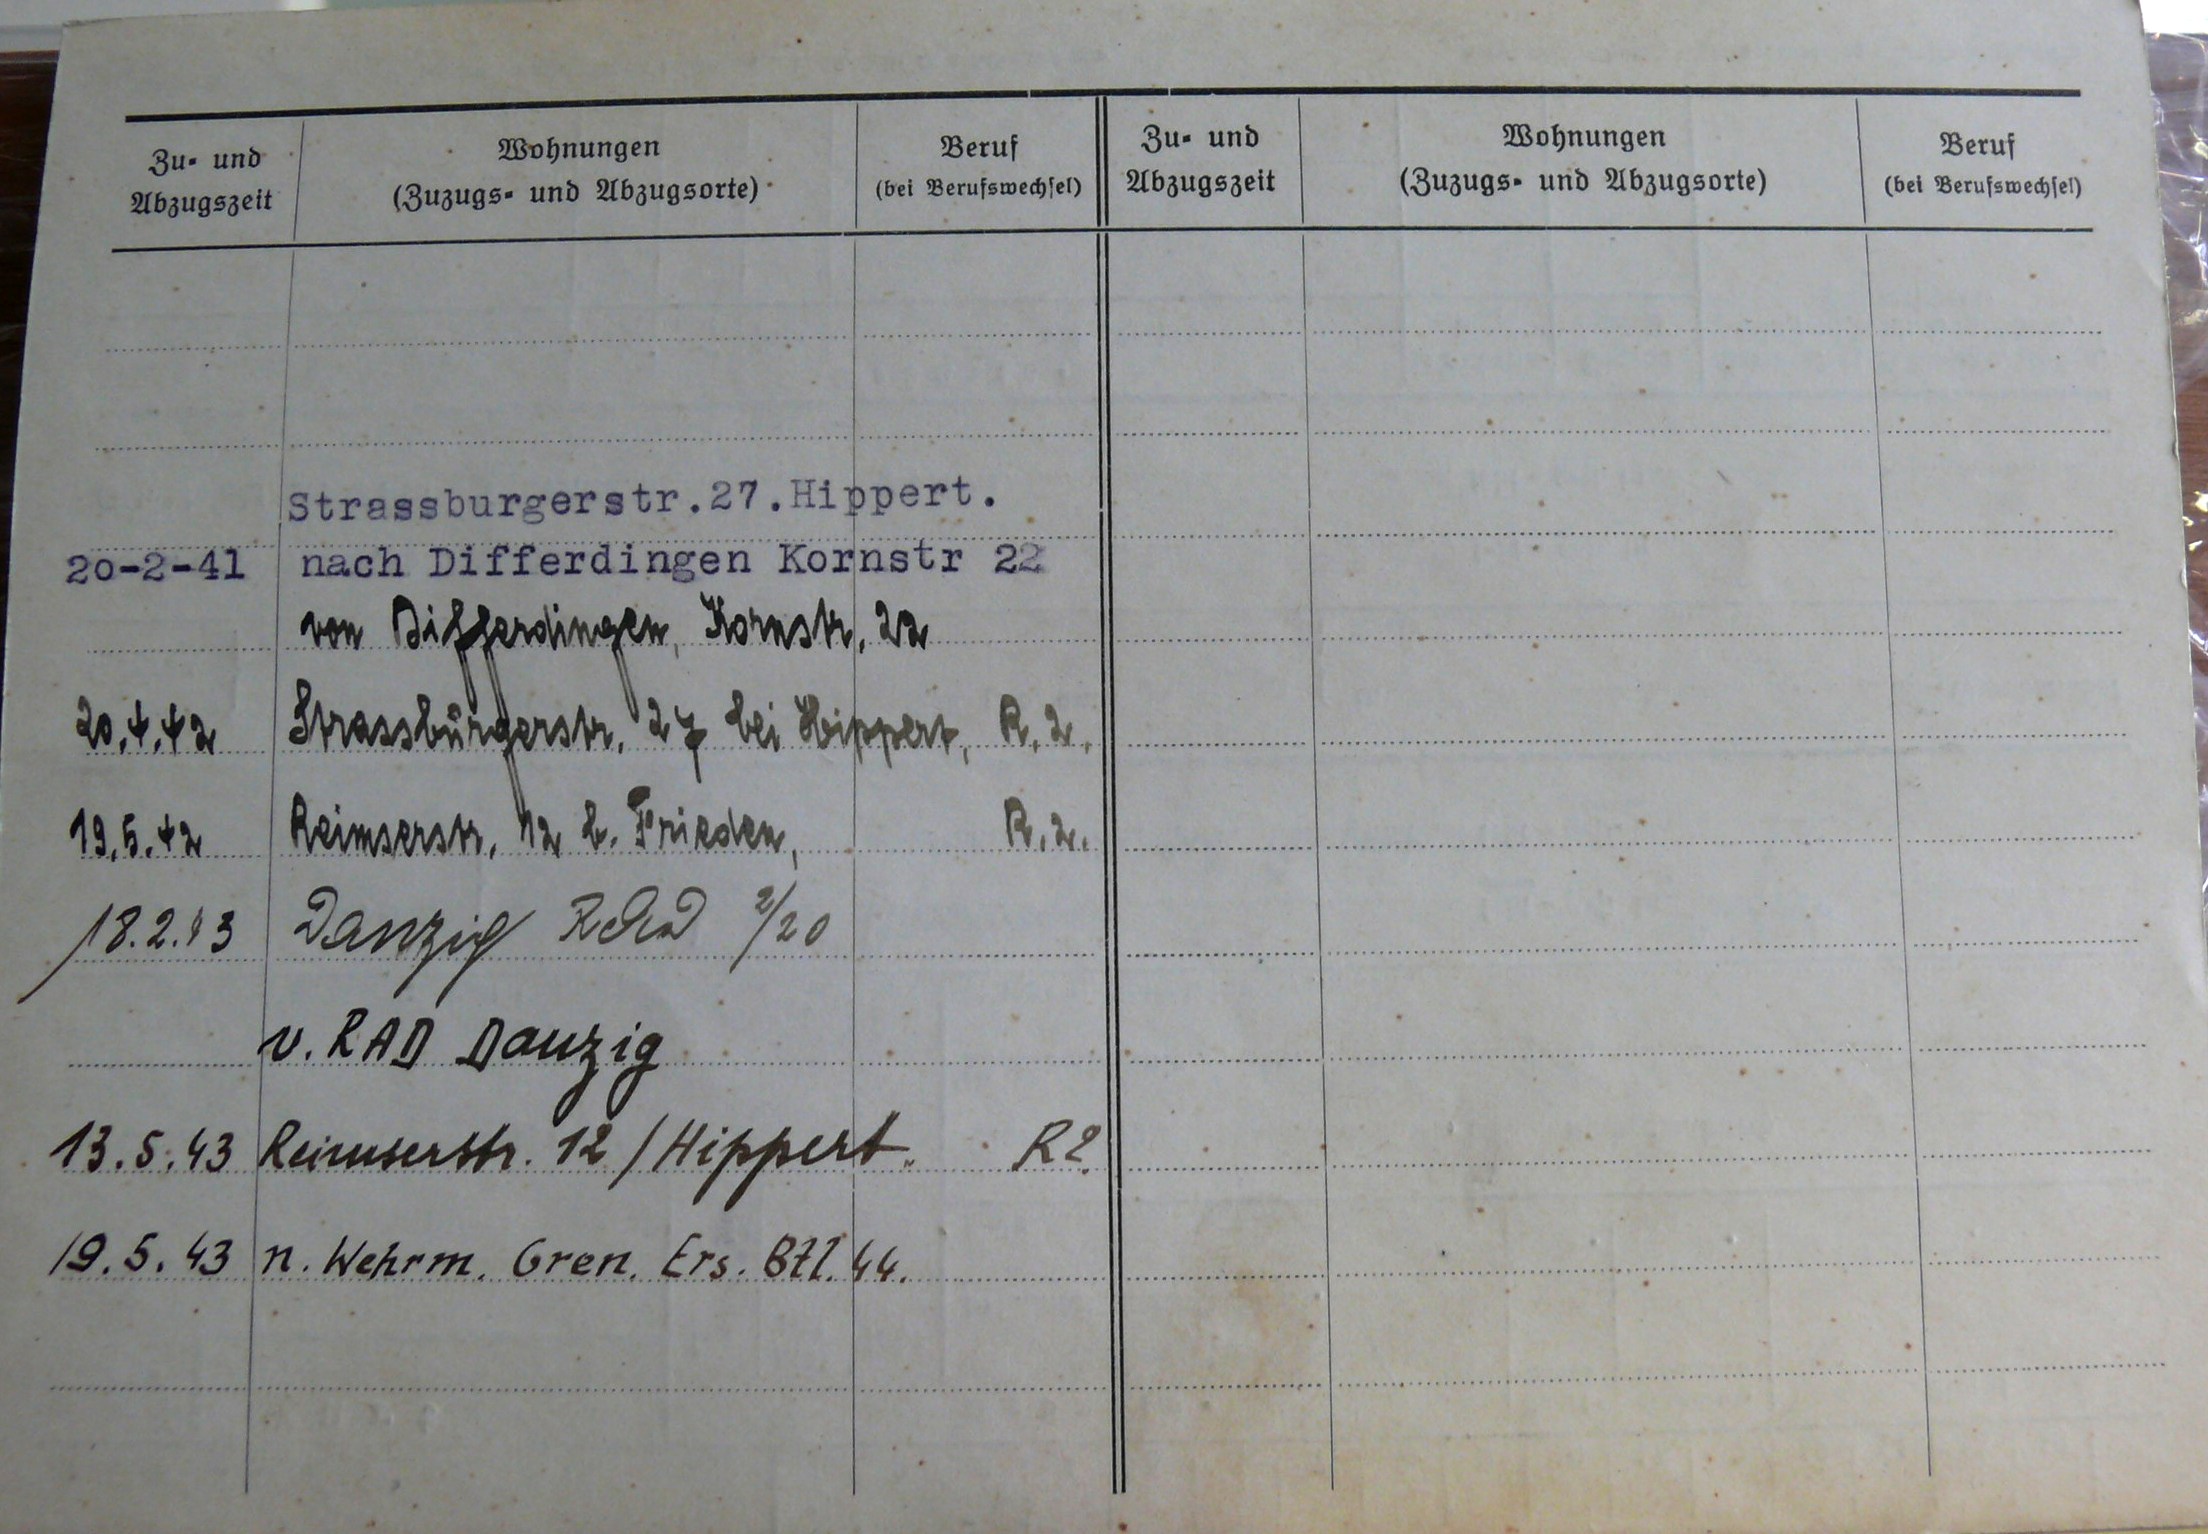 Zu- und Abzugszeit
Wohnungen
(Zuzugs- und Abzugsorte)
Beruf
(bei Berufswechsel)
Zu- und Abzugszeit
Wohnungen
(Zuzugs- und Abzugsorte)
Beruf
(bei Berufswechsel)
Strassburgerstr.27.Hippert.
20-2-41 nach Differdingen Kornstr 22
von Differdingen, Kornstr. 22
20.4.42 Strassburgerstr. 27 bei Hippert, R. 2.
19.5.42 Reimserstr. 12 b. Frieden, R. 2.
18.2.43 Danzig RAD 2/20
v. RAD Danzig
13.5.43 Reimserstr. 12 / Hippert. R 2.
19.5.43 n. Wehrm. Gren. Ers. Btl. 44.